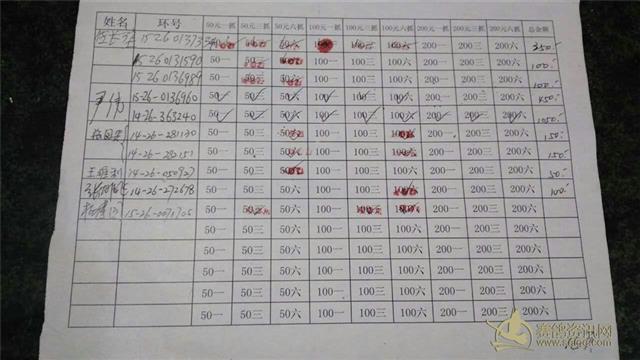 姓名 环号 50元一抓 50元三抓 50元六抓 100元一抓 100元三抓 100元六抓 200元一抓 200元三抓 200元六抓 总金额
50三 50六 100一 100三 100六 200一 200三 200六 350.-
15 26 0131590 50一 50三 50六 100一 100三 100六 200一 200三 200六 100.-
15 26 0136989 50一 50三 50六 100一 100三 100六 200一 200三 200六 100.-
15-26-0136960 50一 50三 50六 100一 100三 100六 200一 200三 200六 450
14-26-363240 50一 50三 50六 100一 100三 100六 200一 200三 200六 1050
14-26-281130 50一 50三 50六 100一 100三 100六 200一 200三 200六 150.-
14-26-282151 50一 50三 50六 100一 100三 100六 200一 200三 200六 150.-
14-26-050927 50一 50三 50六 100一 100三 100六 200一 200三 200六 50.-
14-26-272678 50一 50三 50六 100一 100三 100六 200一 200三 200六 100.-
50一 50三 50六 100一 100三 100六 200一 200三 200六
50一 50三 50六 100一 100三 100六 200一 200三 200六
50一 50三 50六 100一 100三 100六 200一 200三 200六
50一 50三 50六 100一 100三 100六 200一 200三 200六
50一 50三 50六 100一 100三 100六 200一 200三 200六
50一 50三 50六 100一 100三 100六 200一 200三 200六
赛鸽资讯网